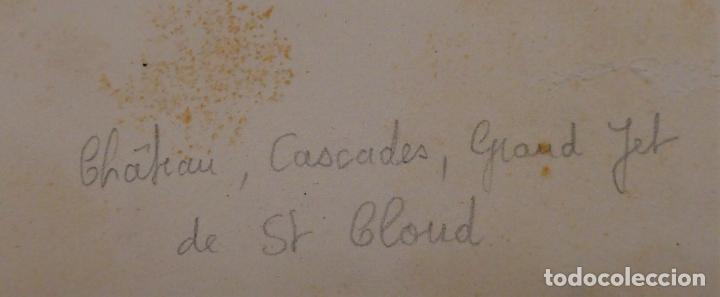 Château, Cascades, Grand Jet
de St Cloud
todocoleccion